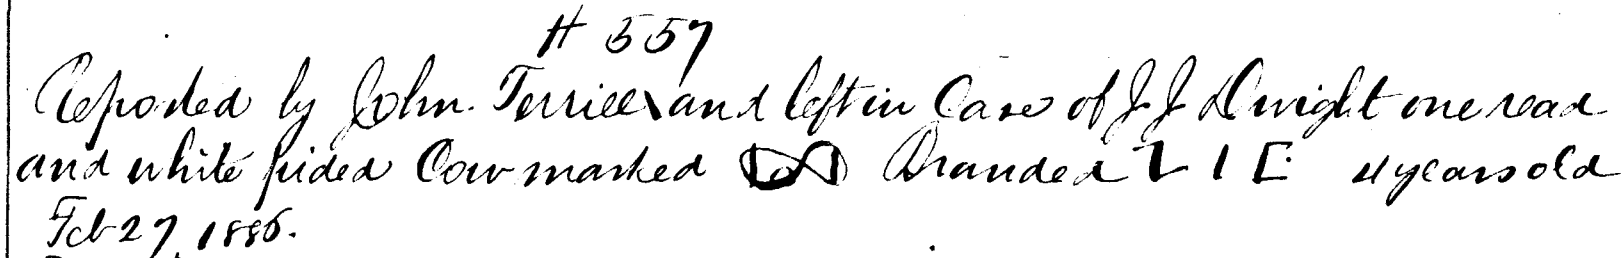 # 557
Reported by John. Terrill and left in Care of J. J. Dwight one read
and white pided Cow marked Branded L I E 4 years old
Feb 27 1886.